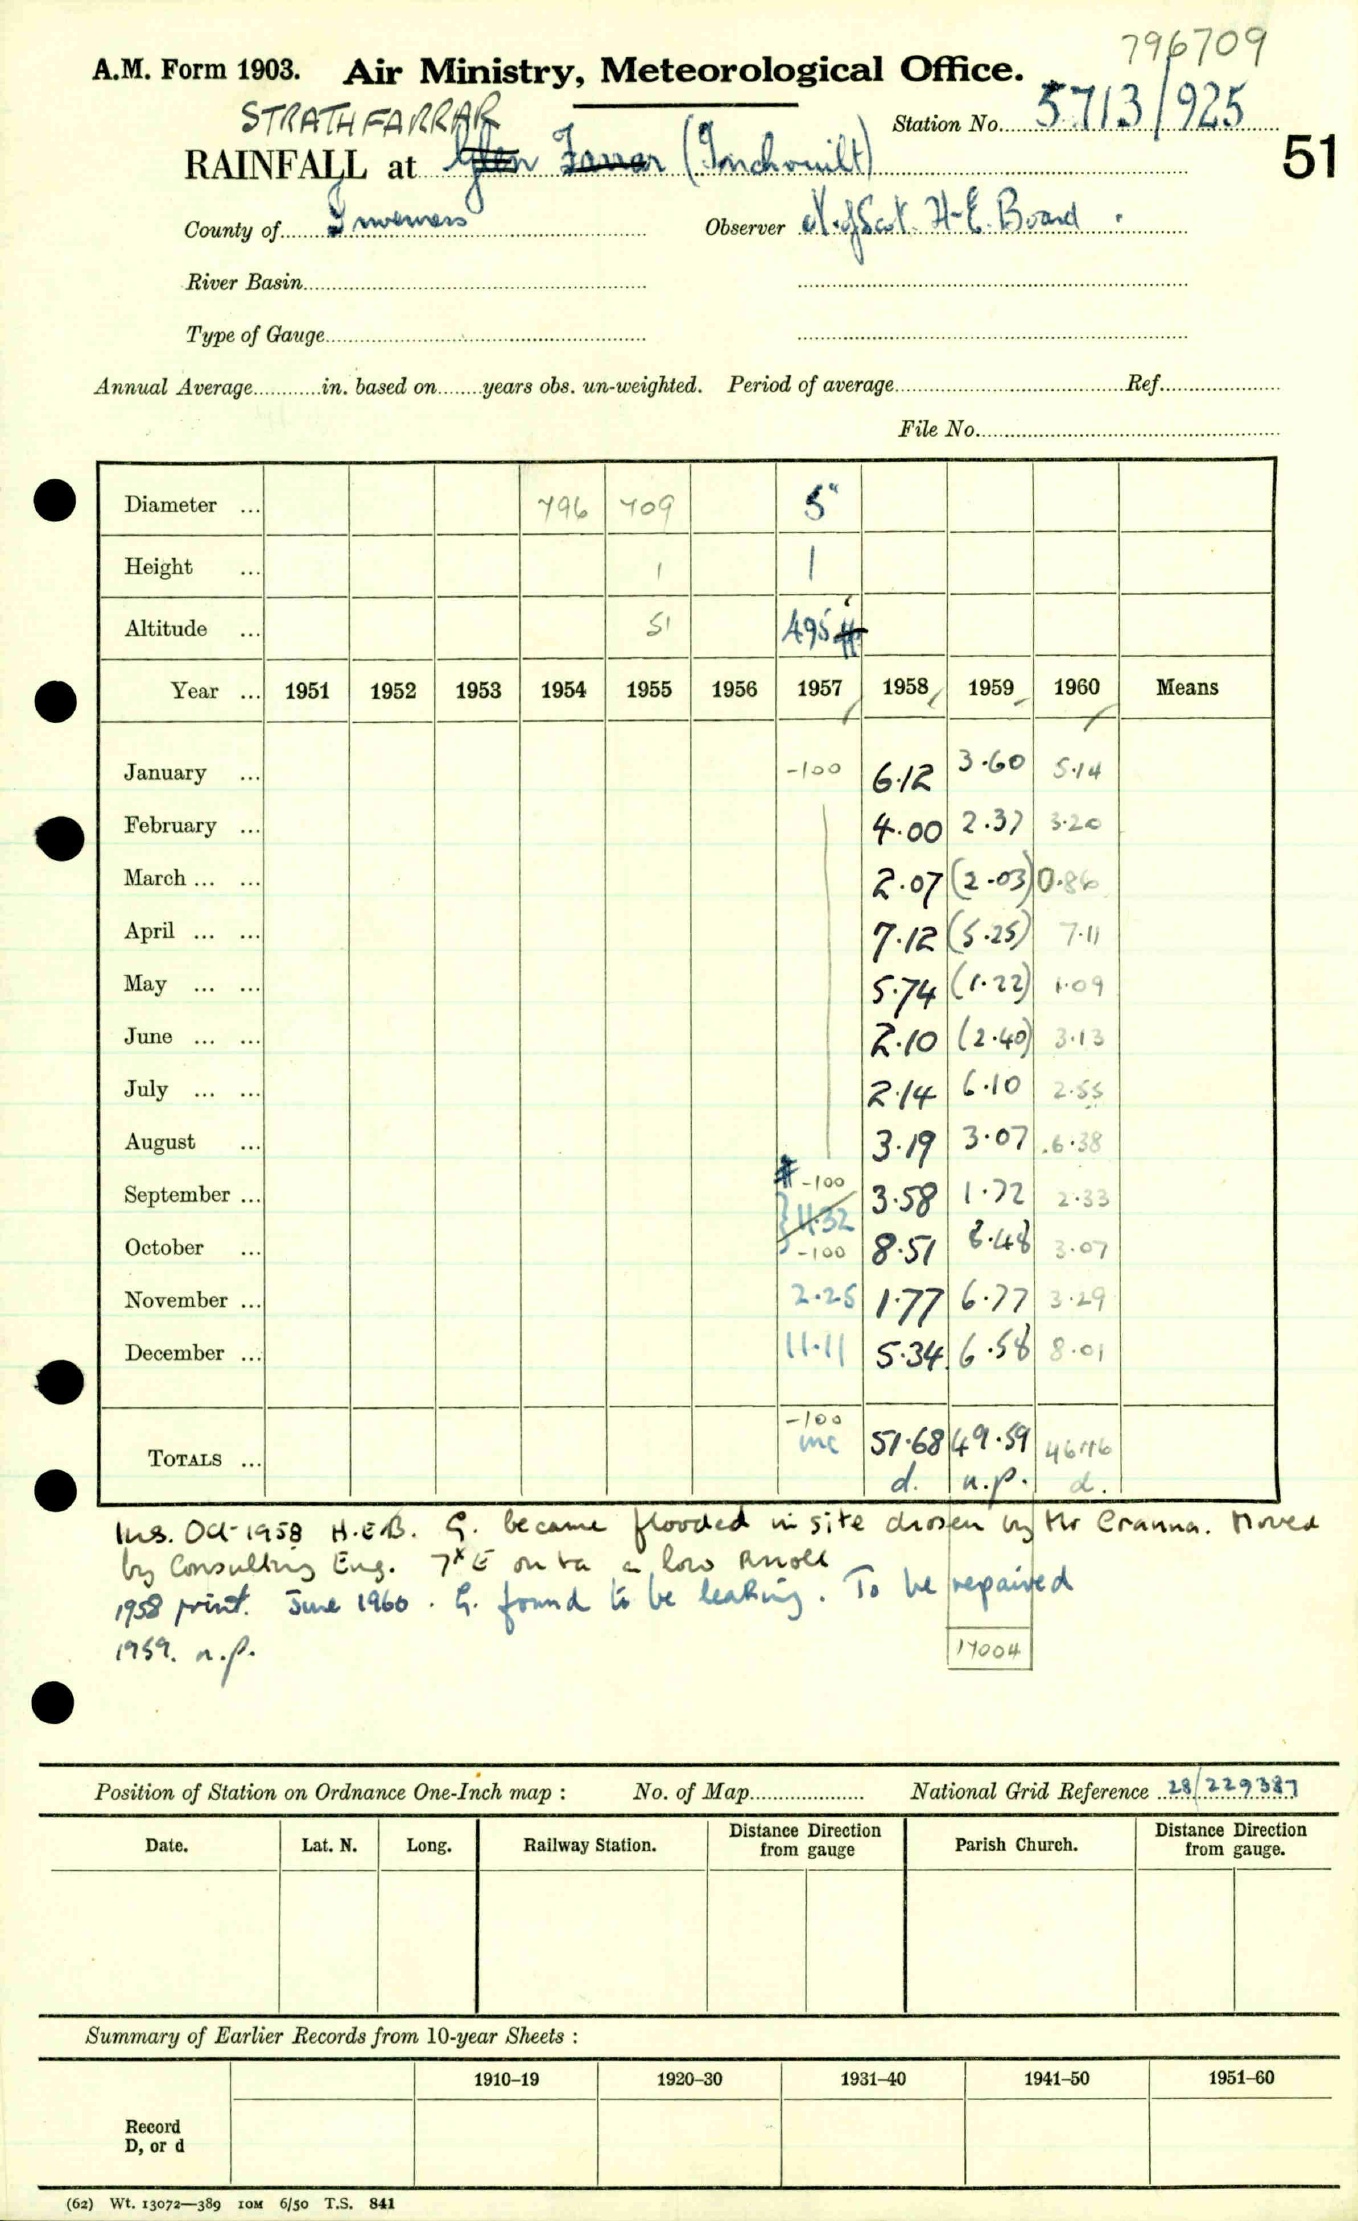 796709
A.M. Form 1903. Air Ministry, Meteorological Office.
STRATHFARRAR
Station No. 5713/925
51
RAINFALL at Glen Farrar (Inchvuilt)
County of Inverness Observer N. of Scot. H-E. Board.
River Basin
Type of Gauge
Annual Average in. based on years obs. un-weighted. Period of average Ref.
File No.
Diameter ... 796 709 5"
Height ... 1 1
Altitude ... 51 495
Year ... 1951 1952 1953 1954 1955 1956 1957 1958 1959 1960 Means
January ... -100 6.12 3.60 5.14
February ... 4.00 2.37 3.20
March ... ... 2.07 (2.03) 0.86
April ... ... 7.12 (5.25) 7.11
May ... ... 5.74 (1.22) 1.09
June ... ... 2.10 (2.40) 3.13
July ... ... 2.14 6.10 2.55
August ... 3.19 3.07 .6.38
September ... -100 3.58 1.72 2.33
11.32
October ... -100 8.51 8.48 3.07
November ... 2.25 1.77 6.77 3.29
December ... 11.11 5.34 6.58 8.01
-100
TOTALS ... inc 51.68 49.59 46.16
d. n.p. d.
Ins. Oct 1958 H.E.B. G. became flooded in site chosen by Mr Cranna. Moved
by Consulting Eng. 7x E on to a low knoll
1958 print. June 1960. G. found to be leaking. To be repaired
1959. n.p.
17004
Position of Station on Ordnance One-Inch map : No. of Map National Grid Reference 28/229387
Date. Lat. N. Long. Railway Station. Distance Direction from gauge Parish Church. Distance Direction from gauge.
Summary of Earlier Records from 10-year Sheets :
1910–19 1920–30 1931–40 1941–50 1951–60
Record
D, or d
(62) Wt. 13072—389 10M 6/50 T.S. 841